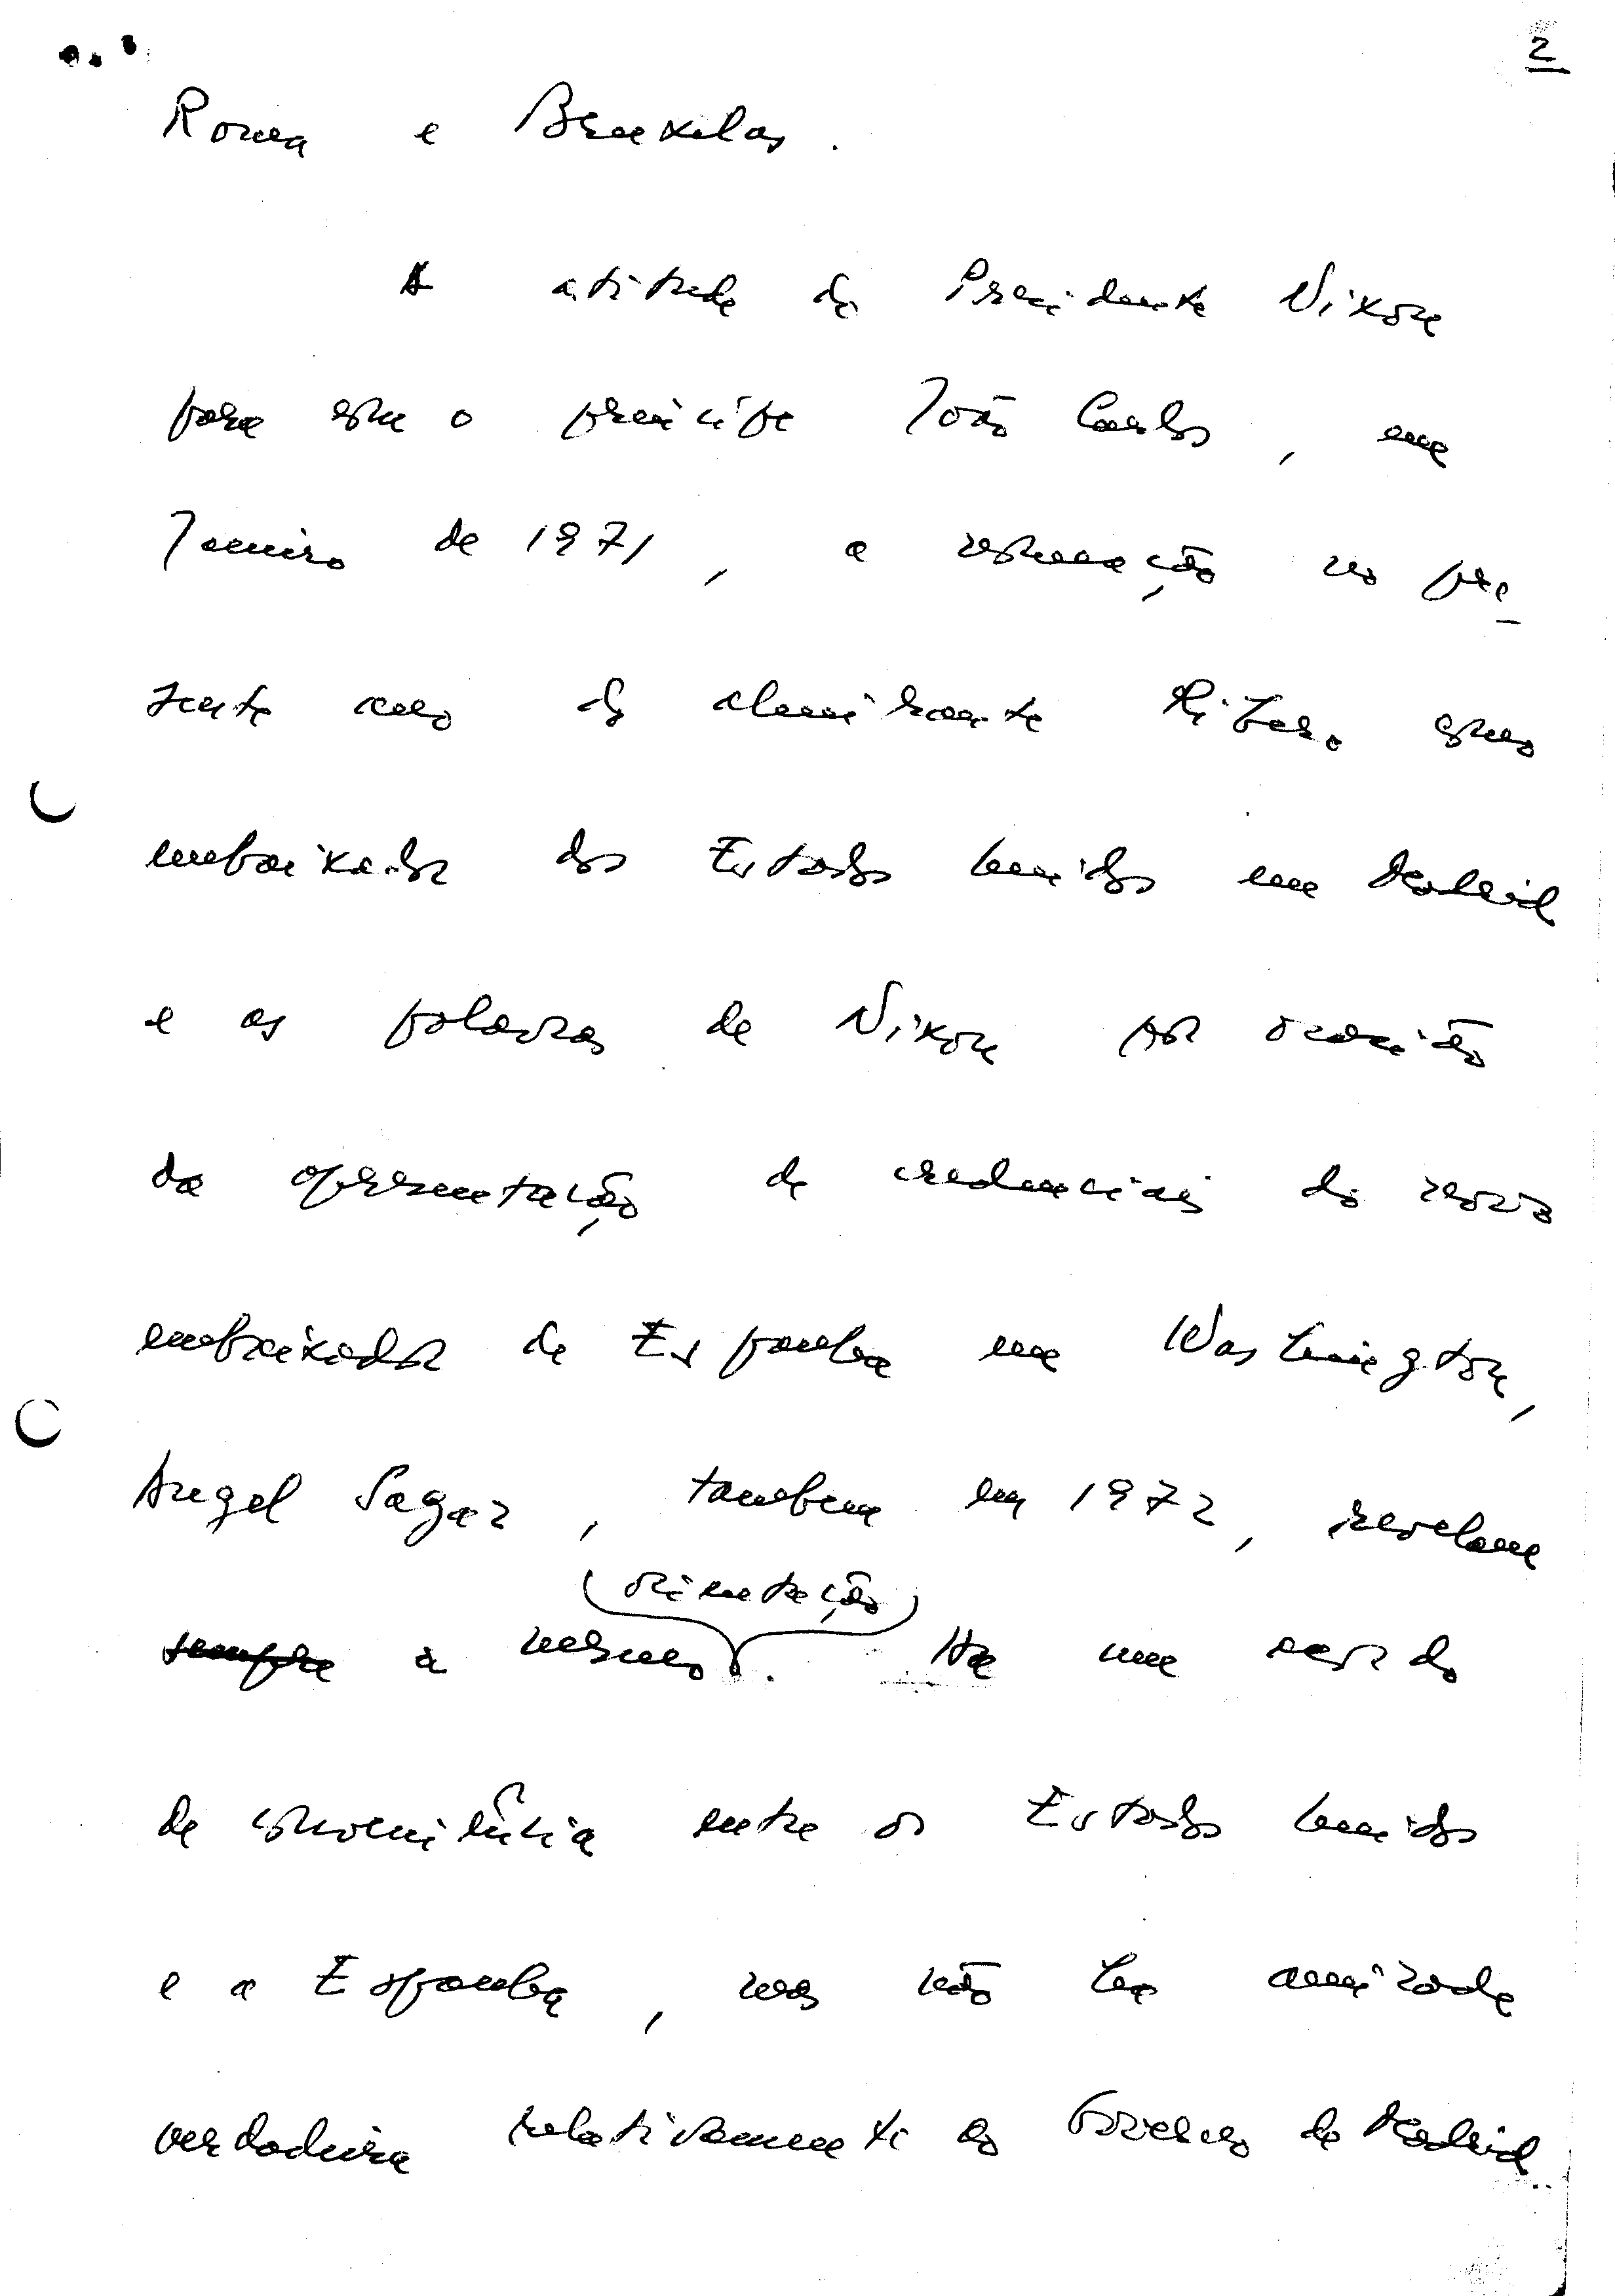 2
Roma e Bruxelas.
A atitude do Presidente Nixon
para com o príncipe João Carlos, em
Janeiro de 1971, a nomeação no pre-
sente ano do almirante Rivero como
embaixador dos Estados Unidos em Madrid
e as palavras de Nixon por ocasião
da apresentação de credenciais do novo
embaixador de Espanha em Washington,
Angel Sagaz, tambem em 1972, revelam
orientação
sempre a mesma. Ha um acordo
de conveniência entre os Estados Unidos
e a Espanha, mas não ha amizade
verdadeira relativamente ao Governo de Madrid.